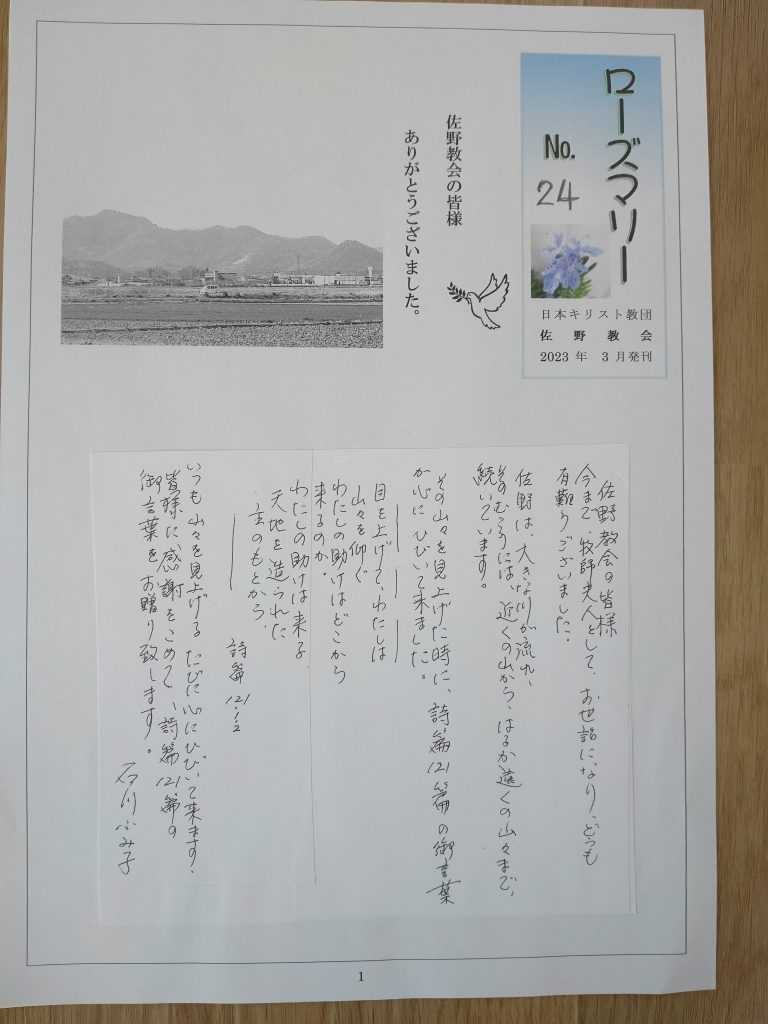 ローズマリー
No.
24
日本キリスト教団
佐野教会
2023年 3月発刊
佐野教会の皆様
ありがとうございました。
佐野教会の皆様
今まで、牧師夫人として、お世話になり、どうも
有難うございました。
佐野は、大きな川が流れ、
そのむこうには、近くの山から、はるか遠くの山々まで、
続いています。
その山々を見上げた時に、詩篇121篇の御言葉
が心にひびいて来ました。
目を上げて、わたしは
山々を仰ぐ
わたしの助けはどこから
来るのか。
わたしの助けは来る
天地を造られた
主のもとから。
詩篇121.1~2
いつも山々を見上げるたびに心にひびいて来ます。
皆様に感謝をこめて、詩篇121篇の
御言葉をお贈り致します。
石川ふみ子
1